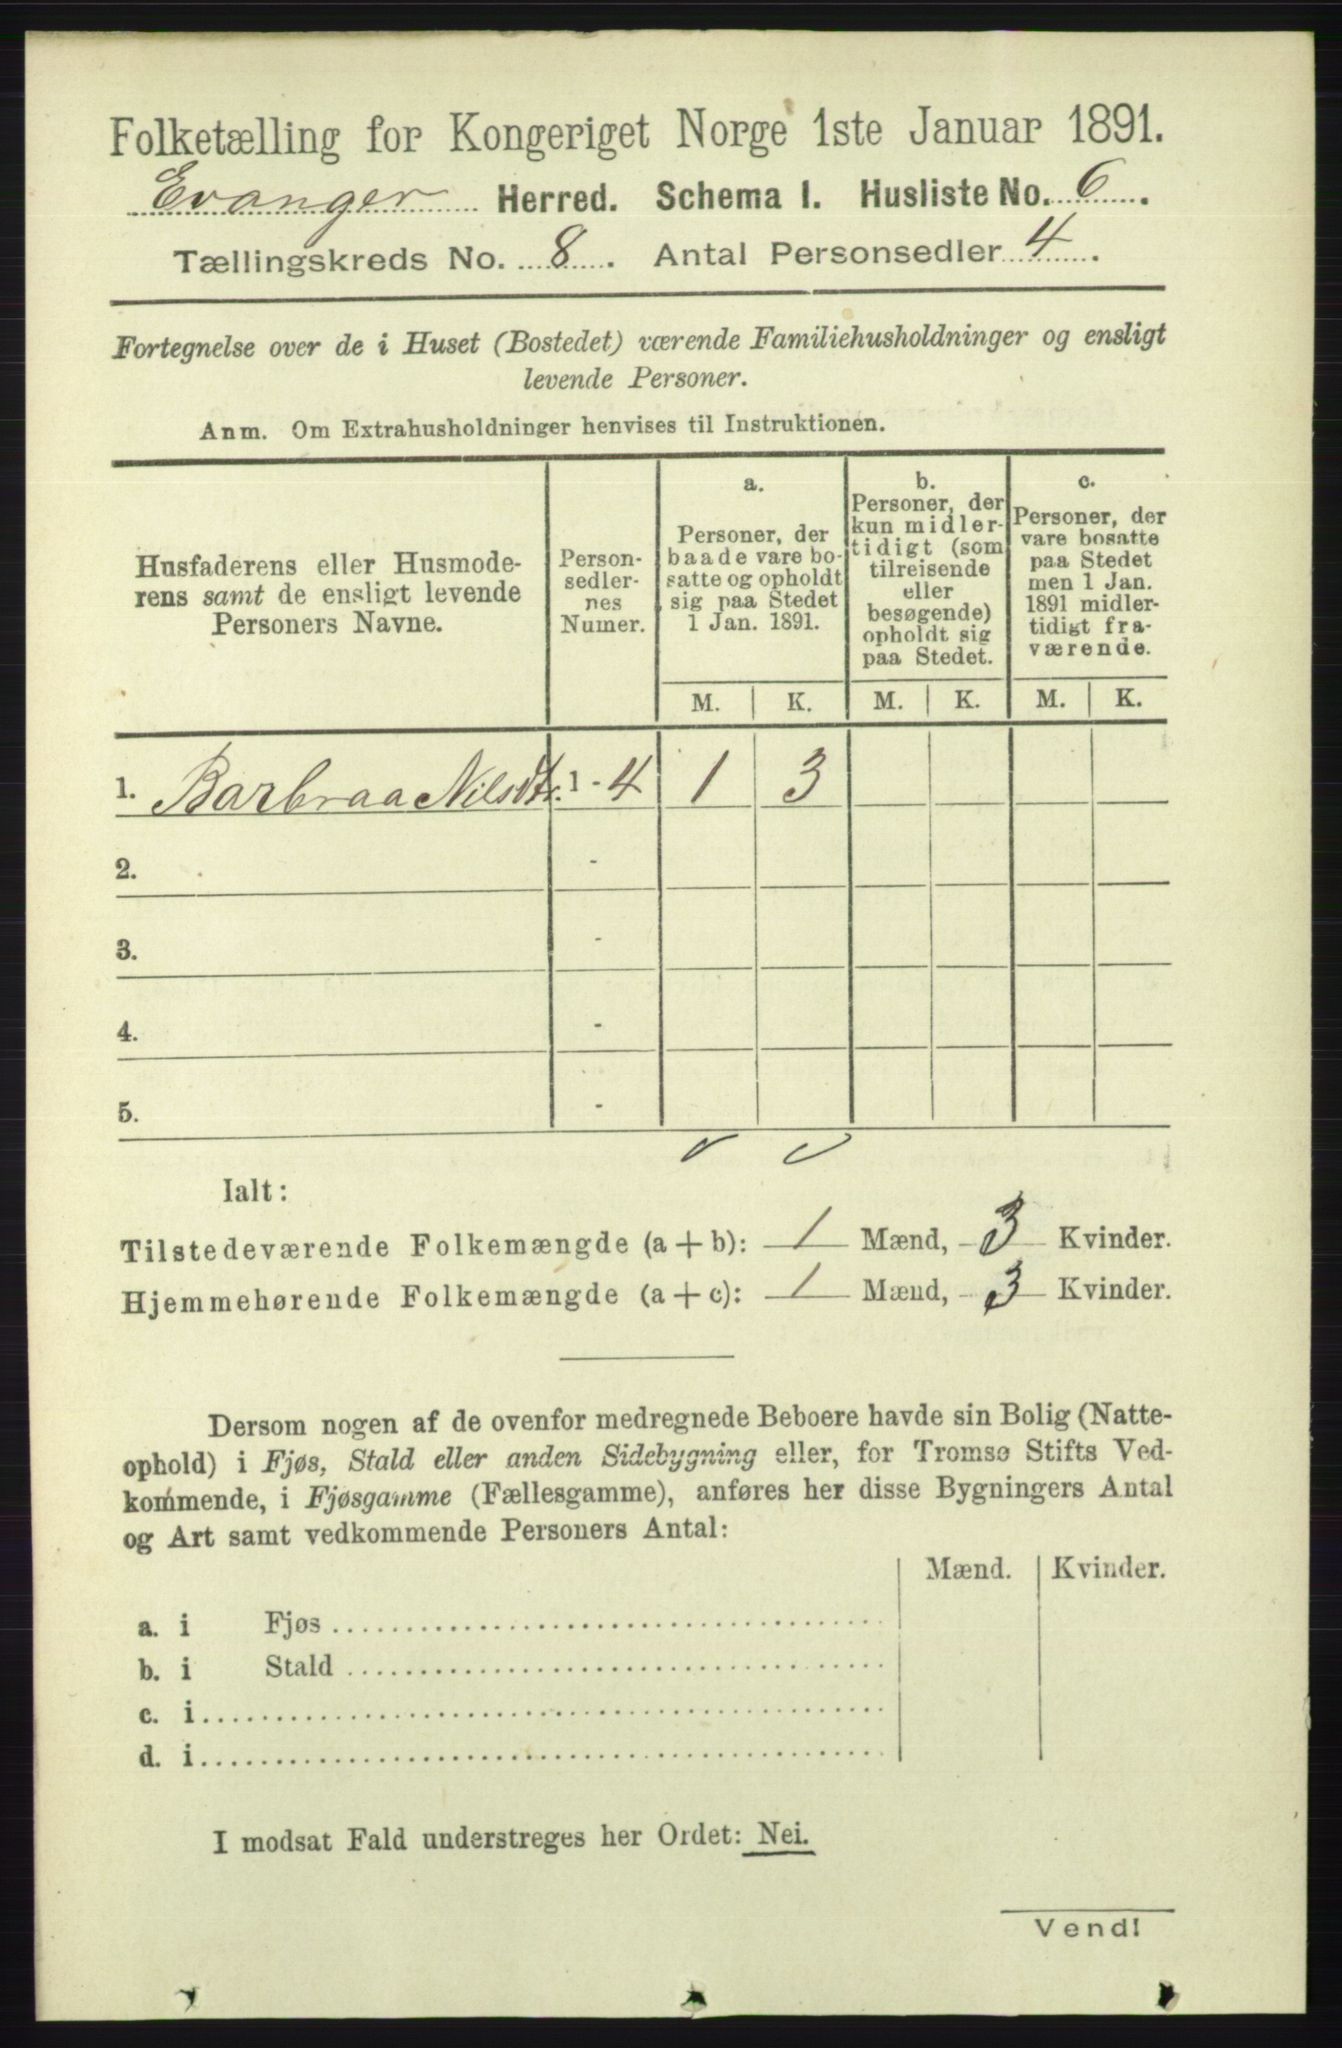 Folketælling for Kongeriget Norge 1ste Januar 1891.
Evanger Herred. Schema I. Husliste No. 6.
Tællingskreds No. 8. Antal Personsedler 4.
Fortegnelse over de i Huset (Bostedet) værende Familiehusholdninger og ensligt
levende Personer.
Anm. Om Extrahusholdninger henvises til Instruktionen.
Husfaderens eller Husmode-
rens samt de ensligt levende
Personers Navne.
Person-
sedler-
nes
Numer.
a.
Personer, der
baade vare bo-
satte og opholdt
sig paa Stedet
1 Jan. 1891.
b.
Personer, der
kun midler-
tidigt (som
tilreisende
eller
besøgende)
opholdt sig
paa Stedet.
c.
Personer, der
vare bosatte
paa Stedet
men 1 Jan.
1891 midler-
tidigt fra-
værende.
M. K. M. K. M. K.
1. Barbraa Nilsdtr. 1 - 4 1 3
2. -
3. -
4. -
5. -
Ialt:
Tilstedeværende Folkemængde (a + b): 1 Mænd, 3 Kvinder.
Hjemmehørende Folkemængde (a + c): 1 Mænd, 3 Kvinder.
Dersom nogen af de ovenfor medregnede Beboere havde sin Bolig (Natte-
ophold) i Fjøs, Stald eller anden Sidebygning eller, for Tromsø Stifts Ved-
kommende, i Fjøsgamme (Fællesgamme), anføres her disse Bygningers Antal
og Art samt vedkommende Personers Antal:
Mænd. Kvinder.
a. i Fjøs
b. i Stald
c. i
d. i
I modsat Fald understreges her Ordet: Nei.
Vend!